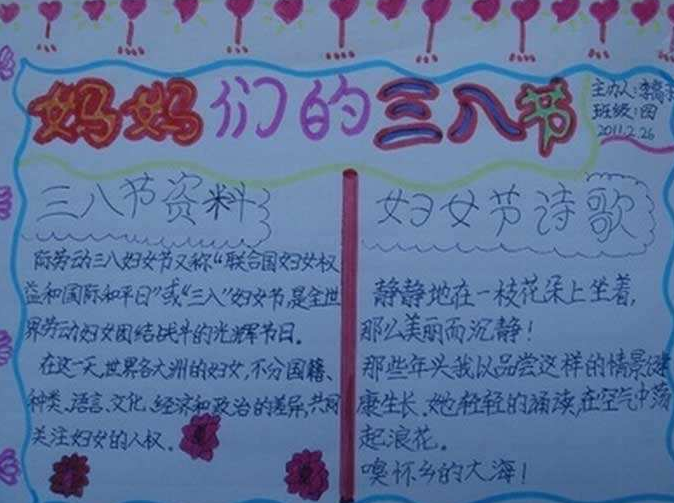 妈妈们的三八节
主办人:李
班级:四
2011.2.26
三八节资料
际劳动三八妇女节又称“联合国妇女权
益和国际和平日”或“三八”妇女节,是全世
界劳动妇女团结战斗的光辉节日。
在这一天,世界各大洲的妇女,不分国籍、
种类、语言、文化、经济和政治的差异,共同
关注妇女的人权。
妇女节诗歌
静静地在一枝花朵上坐着,
那么美丽而沉静!
那些年兴我以品尝这样的情景健
康生长,她轻轻的诵读,在空气中荡
起浪花。
噢怀乡的大海!